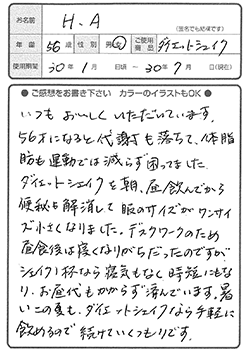 お名前 H.A (匿名でも結構です)
年齢 56歳 性別 男・女 ご使用商品 ダイエットシェイク
使用期間 30年1月 日頃 ～ 30年7月 (現在)
● ご感想をお書き下さい カラーのイラストもOK ●
いつも おいしく いただいています。
56才になると代謝も落ちて、体脂
肪も運動では減らず困ってました。
ダイエットシェイクを朝、昼飲んでから
便秘も解消して服のサイズがワンサイ
ズ小さくなりました。デスクワークのため
昼食後は眠くなりがちだったのですが
シェイク1杯なら寝気もなく時短にもな
り、お昼代もかからず済んでいます。暑
いこの夏も、ダイエットシェイクなら手軽に
飲めるので 続けていくつもりです。